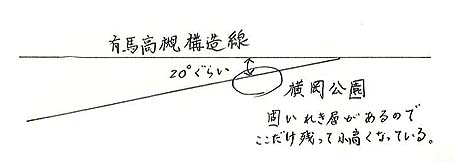 有馬高槻構造線
20°ぐらい
横岡公園
固いれき層があるので
ここだけ残って小高くなっている。